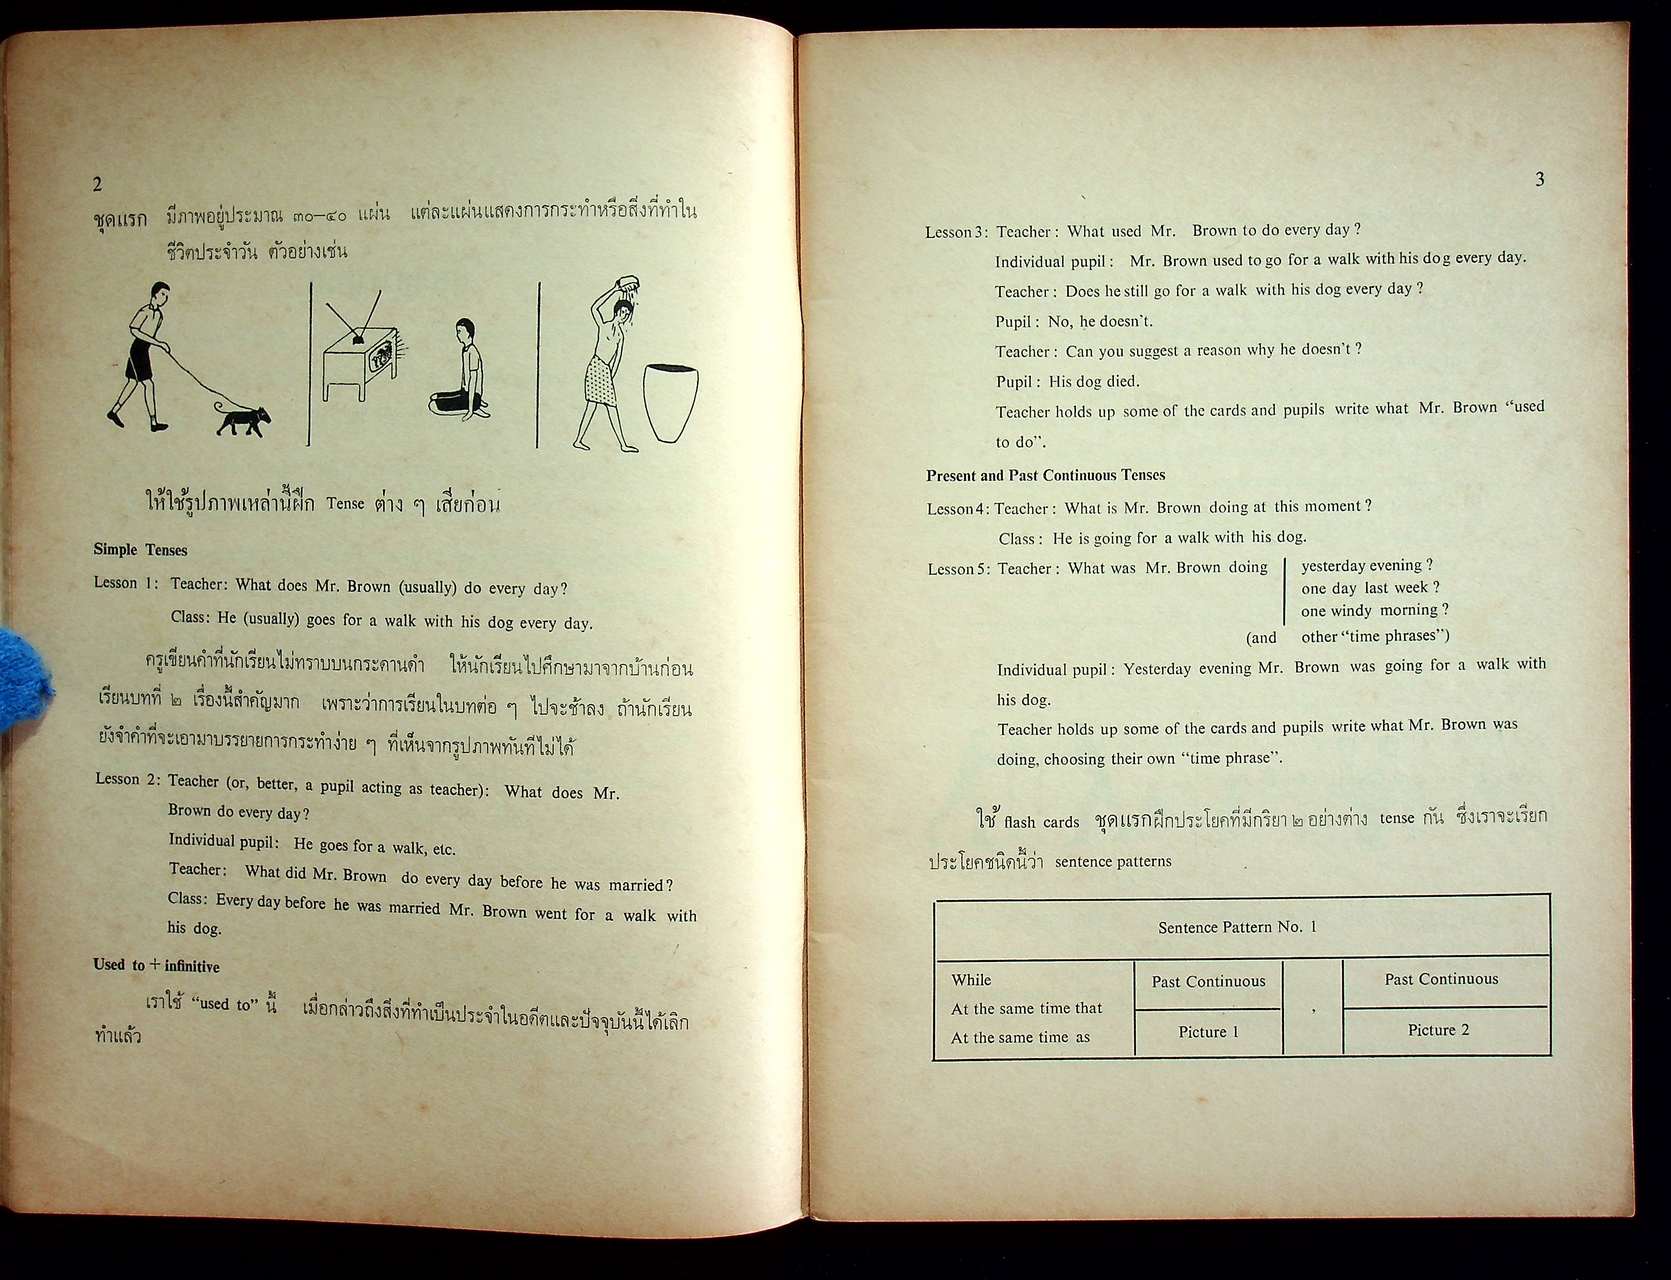 2
ชุดแรก มีภาพอยู่ประมาณ ๓๐—๔๐ แผ่น แต่ละแผ่นแสดงการกระทำหรือสิ่งที่ทำใน
ชีวิตประจำวัน ตัวอย่างเช่น
ให้ใช้รูปภาพเหล่านี้ฝึก Tense ต่าง ๆ เสียก่อน
Simple Tenses
Lesson 1: Teacher: What does Mr. Brown (usually) do every day?
Class: He (usually) goes for a walk with his dog every day.
ครูเขียนคำที่นักเรียนไม่ทราบบนกระดานดำ ให้นักเรียนไปศึกษามาจากบ้านก่อน
เรียนบทที่ ๒ เรื่องนี้สำคัญมาก เพราะว่าการเรียนในบทต่อ ๆ ไปจะช้าลง ถ้านักเรียน
ยังจำคำที่จะเอามาบรรยายการกระทำง่าย ๆ ที่เห็นจากรูปภาพทันทีไม่ได้
Lesson 2: Teacher (or, better, a pupil acting as teacher): What does Mr.
Brown do every day?
Individual pupil: He goes for a walk, etc.
Teacher: What did Mr. Brown do every day before he was married?
Class: Every day before he was married Mr. Brown went for a walk with
his dog.
Used to + infinitive
เราใช้ "used to" นี้ เมื่อกล่าวถึงสิ่งที่ทำเป็นประจำในอดีตและปัจจุบันนี้ได้เลิก
ทำแล้ว
3
Lesson 3: Teacher: What used Mr. Brown to do every day?
Individual pupil: Mr. Brown used to go for a walk with his dog every day.
Teacher: Does he still go for a walk with his dog every day?
Pupil: No, he doesn't.
Teacher: Can you suggest a reason why he doesn't?
Pupil: His dog died.
Teacher holds up some of the cards and pupils write what Mr. Brown "used
to do".
Present and Past Continuous Tenses
Lesson 4: Teacher: What is Mr. Brown doing at this moment?
Class: He is going for a walk with his dog.
Lesson 5: Teacher: What was Mr. Brown doing yesterday evening?
one day last week?
one windy morning?
(and other "time phrases")
Individual pupil: Yesterday evening Mr. Brown was going for a walk with
his dog.
Teacher holds up some of the cards and pupils write what Mr. Brown was
doing, choosing their own "time phrase".
ใช้ flash cards ชุดแรกฝึกประโยคที่มีกริยา ๒ อย่างต่าง tense กัน ซึ่งเราจะเรียก
ประโยคชนิดนี้ว่า sentence patterns
Sentence Pattern No. 1
While Past Continuous Past Continuous
At the same time that ,
At the same time as Picture 1 Picture 2